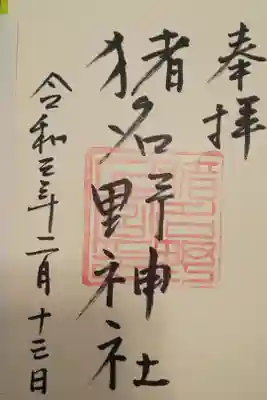 奉拝
猪名野神社
令和三年二月十三日